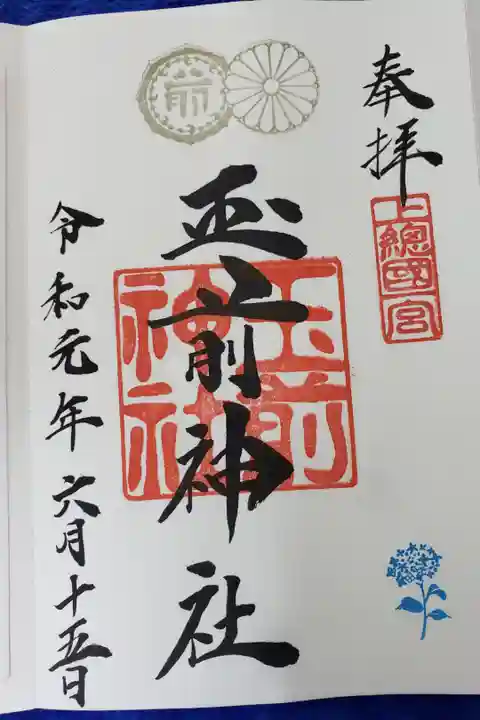 奉拝
上總國一宮
前
玉前神社
玉前神社
令和元年六月十五日